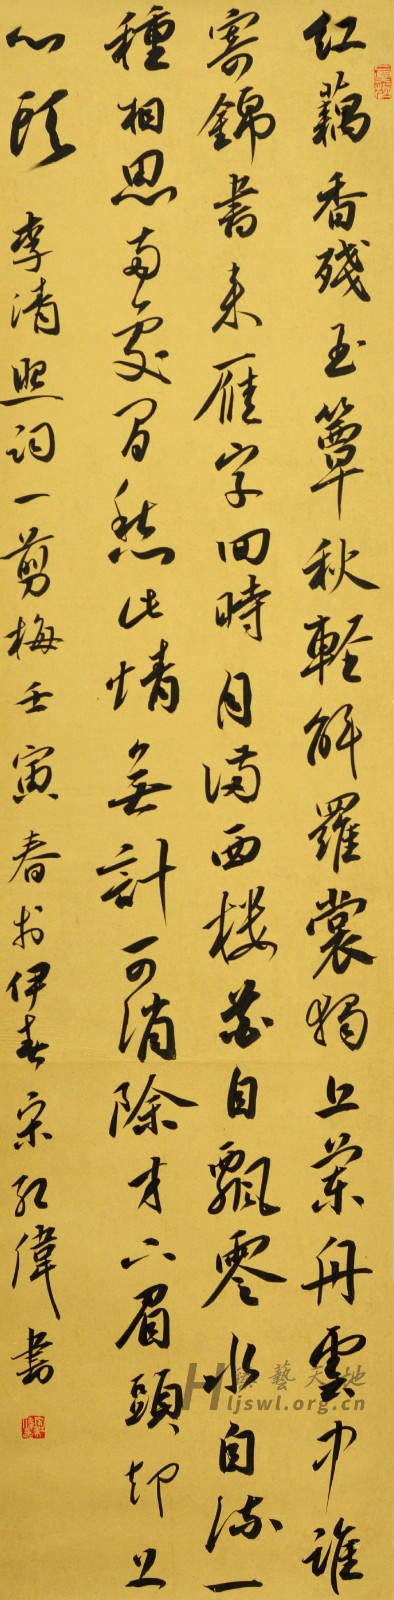 红藕香残玉簟秋轻解羅裳獨上蘭舟雲中誰
寄錦書来雁字回時月満西楼花自飄零水自流一
種相思两處闲愁此情無計可消除才下眉頭却上
心頭
李清照词一剪梅壬寅春於伊春宋紅偉书
龍藝天地
Hljswl.org.cn